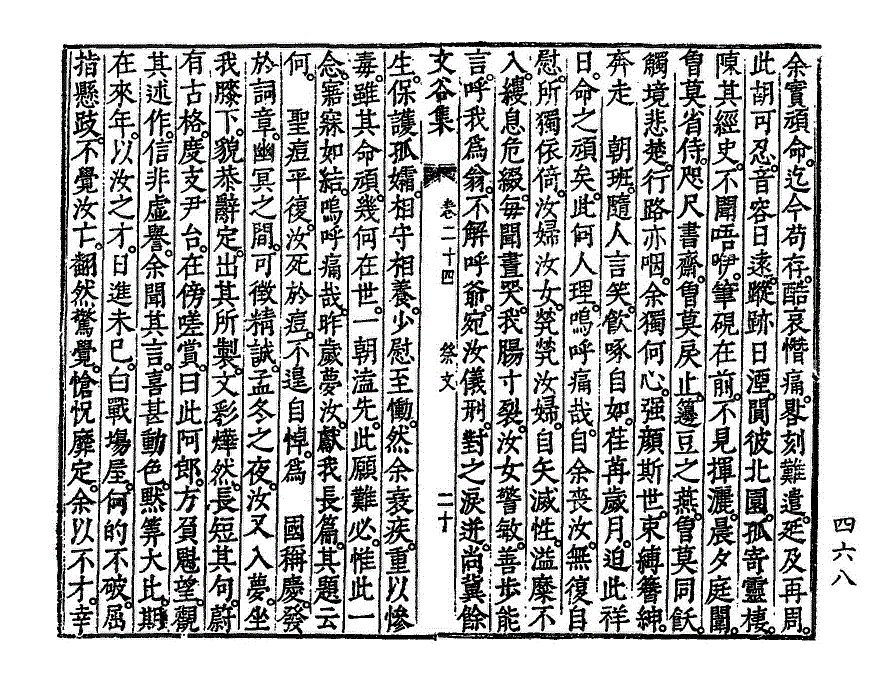 余實頑命。迄今苟存。酷哀憯痛。晷刻難遣。延及再周。
此胡可忍。音容日遠。蹤跡日湮。閴彼北園。孤寄靈棲。
陳其經史。不聞唔咿。筆硯在前。不見揮灑。晨夕庭闈。
曾莫省侍。咫尺書齋。曾莫戾止。籩豆之燕。曾莫同飫。
觸境悲楚。行路亦咽。余獨何心。强顔斯世。束縛簪紳。
奔走 朝班。隨人言笑。飮啄自如。荏苒歲月。迫此祥
日。命之頑矣。此何人理。嗚呼痛哉。自余喪汝。無復自
慰。所獨依倚。汝婦汝女。煢煢汝婦。自矢滅性。溢糜不
入。縷息危綴。每聞晝哭。我腸寸裂。汝女警敏。善步能
言。呼我爲翁。不解呼爺。宛汝儀刑。對之淚迸。尙冀餘
文谷集 卷二十四 祭文 二十
生。保護孤孀。相守相養。少慰至慟。然余衰疾。重以慘
毒。雖其命頑。幾何在世。一朝溘先。此願難必。惟此一
念。寤寐如結。嗚呼痛哉。昨歲夢汝。獻我長篇。其題云
何。 聖痘平復。汝死於痘。不遑自悼。爲 國稱慶。發
於詞章。幽冥之間。可徵精誠。孟冬之夜。汝又入夢。坐
我膝下。貌恭辭定。出其所製。文彩燁然。長短其句。蔚
有古格。度支尹台。在傍嗟賞。曰此阿郎。方負魁望。觀
其述作。信非虛譽。余聞其言。喜甚動色。默筭大比。期
在來年。以汝之才。日進未已。白戰場屋。何的不破。屈
指懸跂。不覺汝亡。翻然驚覺。愴怳靡定。余以不才。幸
四六八